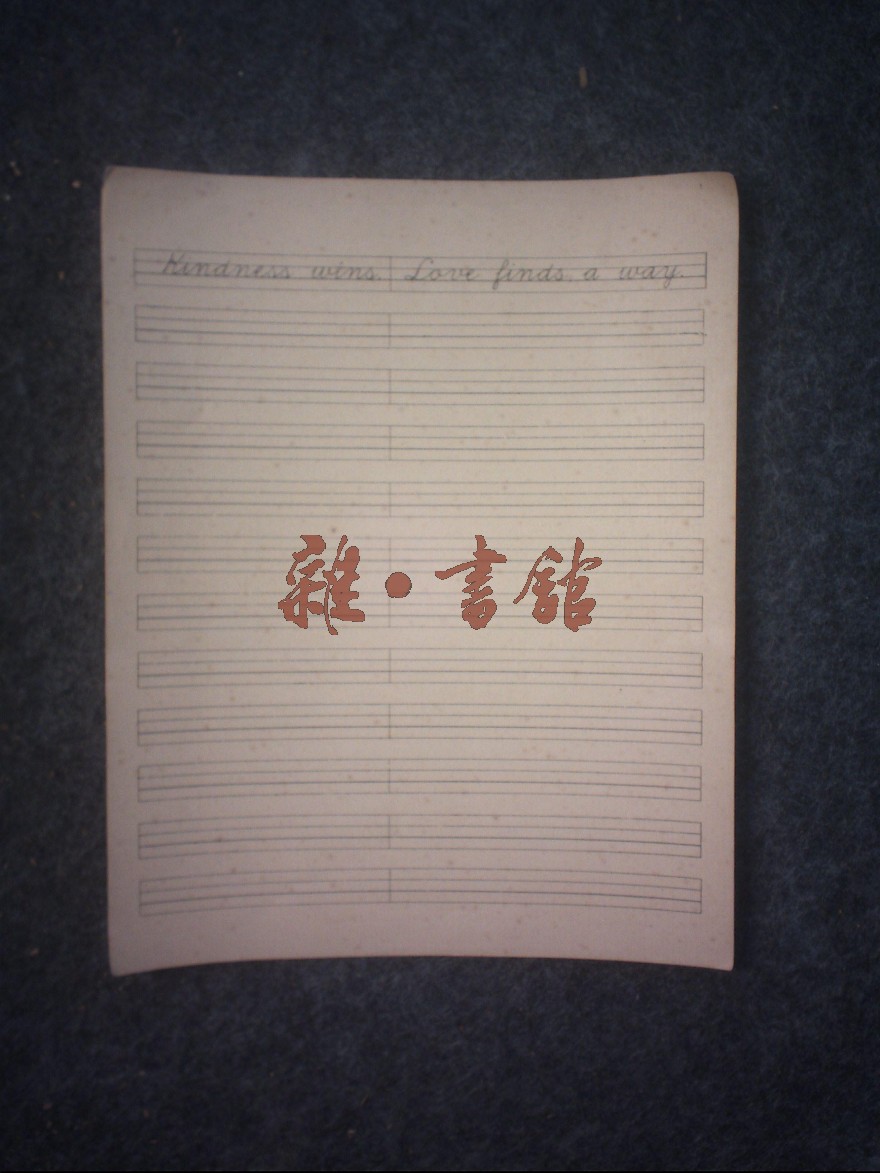 Kindness wins. Love finds a way.
雜·書館